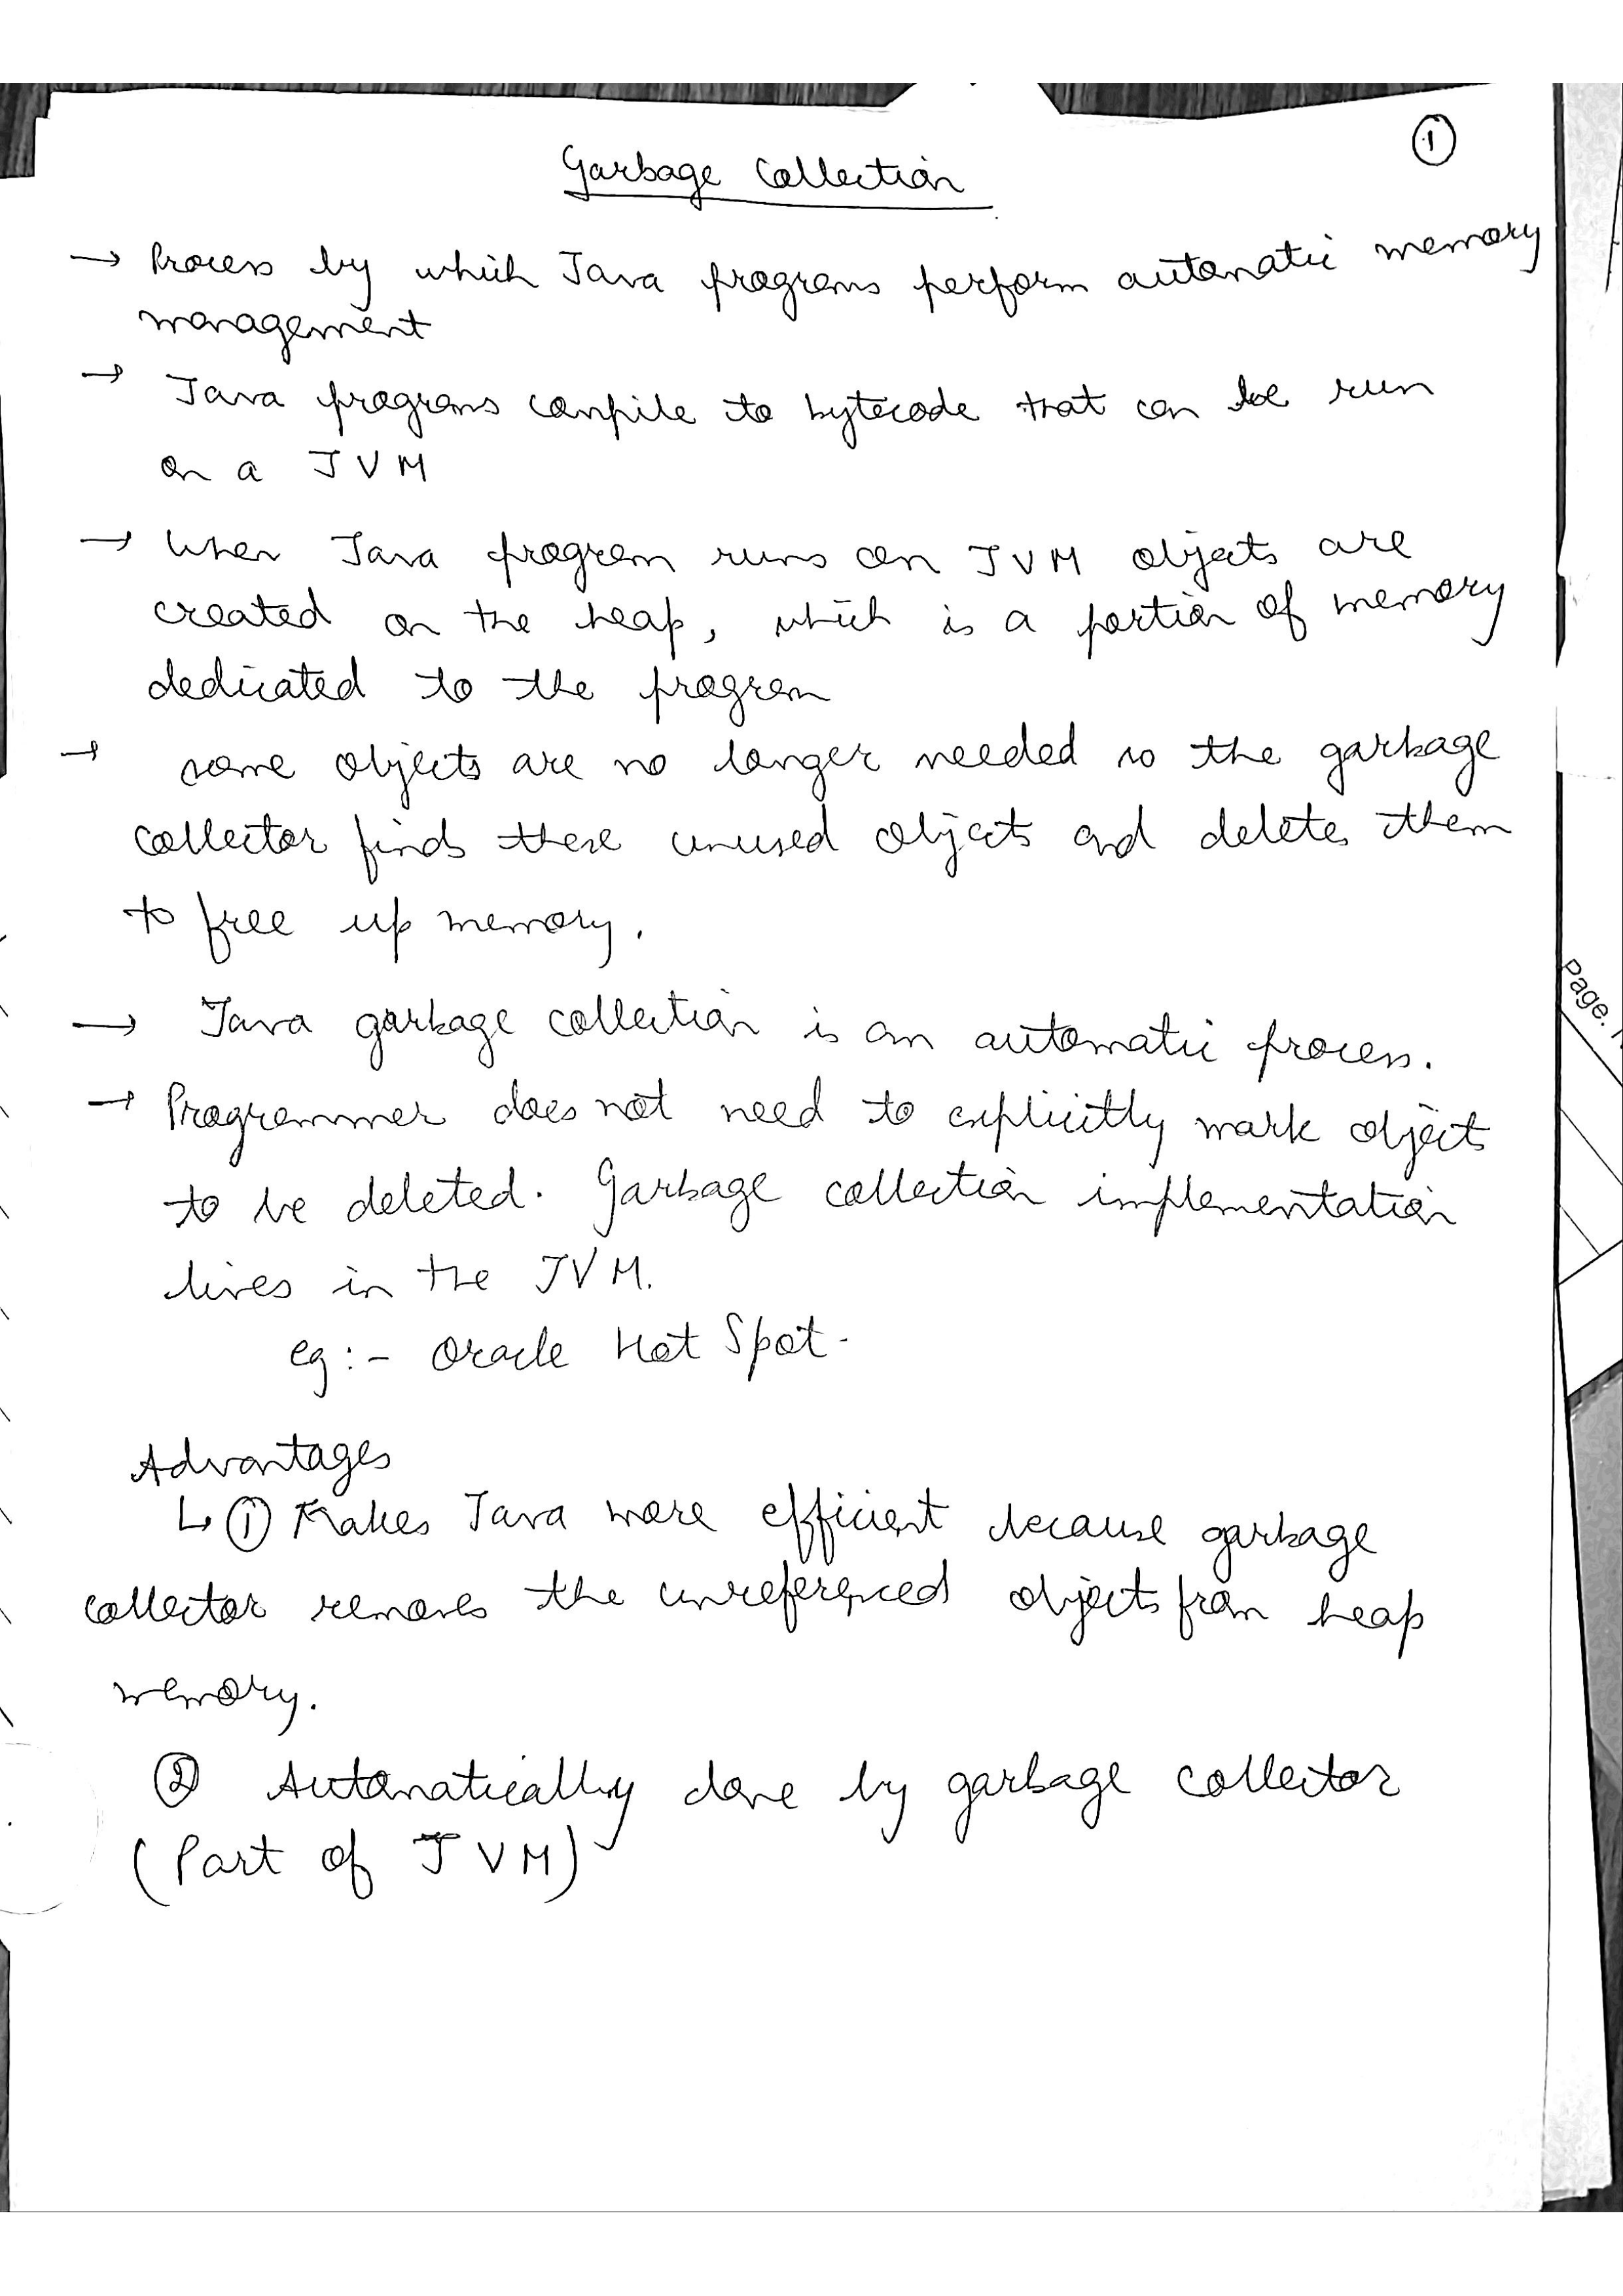 ①
Garbage Collection
→ Process by which Java programs perform automatic memory
management
→ Java programs compile to bytecode that can be run
on a JVM
→ When Java program runs on JVM objects are
created on the heap, which is a portion of memory
dedicated to the program
→ some objects are no longer needed so the garbage
collector finds these unused objects and deletes them
to free up memory.
→ Java garbage collection is an automatic process.
→ Programmer does not need to explicitly mark object
to be deleted. Garbage collection implementation
lives in the JVM.
eg :- Oracle Hot Spot.
Advantages
↳ ① Makes Java more efficient because garbage
collector removes the unreferenced objects from heap
memory.
② Automatically done by garbage collector
(Part of JVM)
Page.